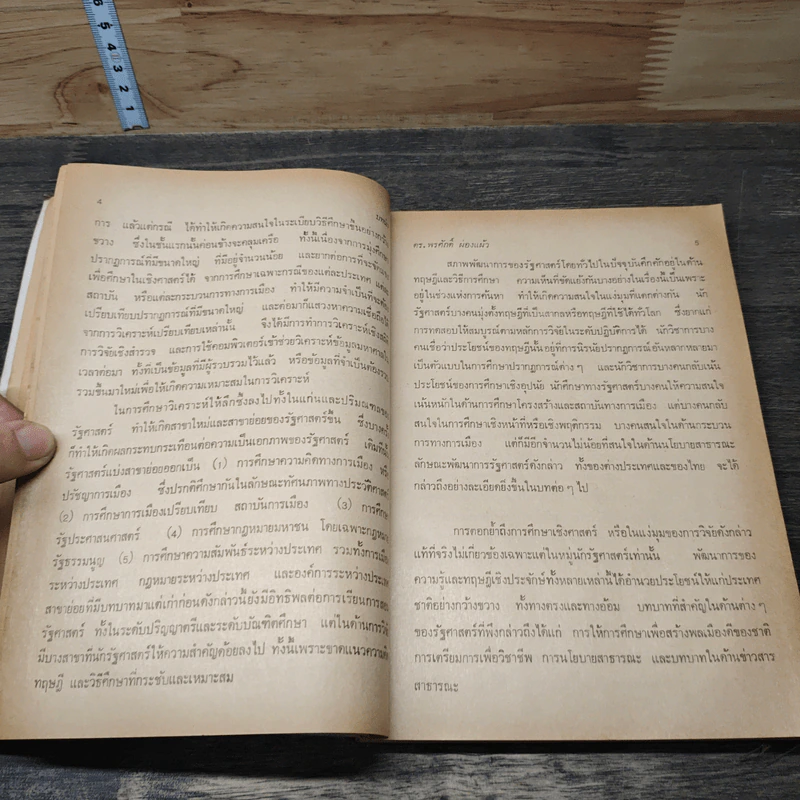 6 5 4 3 2 1
4
การ แล้วแต่กรณี ได้ทำให้เกิดความสนใจในระเบียบวิธีศึกษาขึ้นอย่าง
ขวาง ซึ่งในชั้นแรกนั้นค่อนข้างจะคลุมเครือ ทั้งนี้เนื่องจากการมุ่งศึกษา
ปรากฏการณ์ที่มีขนาดใหญ่ ที่มีอยู่จำนวนน้อย และยากต่อการที่จะ
เพื่อศึกษาในเชิงศาสตร์ได้ จากการศึกษาเฉพาะกรณีของแต่ละประเทศ แต่ละ
สถาบัน หรือแต่ละกระบวนการทางการเมือง ทำให้มีความจำเป็นที่จะต้อง
เปรียบเทียบปรากฏการณ์ที่มีขนาดใหญ่ และต่อมาก็แสวงหาความเชื่อถือได้
จากการวิเคราะห์เปรียบเทียบเหล่านั้น จึงได้มีการทำการวิเคราะห์เชิงสถิติ
การวิจัยเชิงสำรวจ และการใช้คอมพิวเตอร์เข้าช่วยวิเคราะห์ข้อมูลมหาศาลใน
เวลาต่อมา ทั้งที่เป็นข้อมูลที่มีผู้รวบรวมไว้แล้ว หรือข้อมูลที่จำเป็นต้องรวบ
รวมขึ้นมาใหม่เพื่อให้เกิดความเหมาะสมในการวิเคราะห์
ในการศึกษาวิเคราะห์ให้ลึกซึ้งลงไปทั้งในแก่นและปริมณฑลของ
รัฐศาสตร์ ทำให้เกิดสาขาใหม่และสาขาย่อยของรัฐศาสตร์ขึ้น ซึ่งบาง
ก็ทำให้เกิดผลกระทบกระเทือนต่อความเป็นเอกภาพของรัฐศาสตร์ เดิมที
รัฐศาสตร์แบ่งสาขาย่อยออกเป็น (1) การศึกษาความคิดทางการเมือง หรือ
ปรัชญาการเมือง ซึ่งปรกติศึกษากันในลักษณะทัศนภาพทางประวัติศาสตร์
(2) การศึกษาการเมืองเปรียบเทียบ สถาบันการเมือง (3) การศึกษา
รัฐประศาสนศาสตร์ (4) การศึกษากฎหมายมหาชน โดยเฉพาะกฎหมาย
รัฐธรรมนูญ (5) การศึกษาความสัมพันธ์ระหว่างประเทศ รวมทั้งการเมือง
ระหว่างประเทศ กฎหมายระหว่างประเทศ และองค์การระหว่างประเทศ
สาขาย่อยที่มีบทบาทมาแต่เก่าก่อนดังกล่าวนี้ยังมีอิทธิพลต่อการเรียนการสอน
รัฐศาสตร์ ทั้งในระดับปริญญาตรีและระดับบัณฑิตศึกษา แต่ในด้านการวิจัย
มีบางสาขาที่นักรัฐศาสตร์ให้ความสำคัญด้อยลงไป ทั้งนี้เพราะขาดแนวความคิด
ทฤษฎี และวิธีศึกษาที่กระชับและเหมาะสม
ดร. พรศักดิ์ ผ่องแผ้ว
สภาพพัฒนาการของรัฐศาสตร์โดยทั่วไปในปัจจุบันคึกคักอยู่ในด้าน
ทฤษฎีและวิธีการศึกษา ความเห็นที่ขัดแย้งกันบางอย่างในเรื่องนี้เป็นเพราะ
อยู่ในช่วงแห่งการค้นหา ทำให้เกิดความสนใจในแง่มุมที่แตกต่างกัน นัก
รัฐศาสตร์บางคนมุ่งตั้งทฤษฎีที่เป็นสากลหรือทฤษฎีที่ใช้ได้ทั่วโลก ซึ่งยากแก่
การทดสอบให้สมบูรณ์ตามหลักการวิจัยในระดับปฏิบัติการได้ นักวิชาการบาง
คนเชื่อว่าประโยชน์ของทฤษฎีนั้นอยู่ที่การนิรนัยปรากฏการณ์อันหลากหลายมา
เป็นตัวแบบในการศึกษาปรากฏการณ์ต่าง ๆ และนักวิชาการบางคนกลับเน้น
ประโยชน์ของการศึกษาเชิงอุปนัย นักศึกษาทางรัฐศาสตร์บางคนให้ความสนใจ
เน้นหนักในด้านการศึกษาโครงสร้างและสถาบันทางการเมือง แต่บางคนกลับ
สนใจในการศึกษาเชิงหน้าที่หรือเชิงพฤติกรรม บางคนสนใจในด้านกระบวน
การทางการเมือง แต่ก็มีอีกจำนวนไม่น้อยที่สนใจในด้านนโยบายสาธารณะ
ลักษณะพัฒนาการรัฐศาสตร์ดังกล่าว ทั้งของต่างประเทศและของไทย จะได้
กล่าวถึงอย่างละเอียดยิ่งขึ้นในบทต่อ ๆ ไป
การตอกย้ำถึงการศึกษาเชิงศาสตร์ หรือในแง่มุมของการวิจัยดังกล่าว
แท้ที่จริงไม่เกี่ยวข้องเฉพาะแต่ในหมู่นักรัฐศาสตร์เท่านั้น พัฒนาการของ
ความรู้และทฤษฎีเชิงประจักษ์ทั้งหลายเหล่านี้ได้อำนวยประโยชน์ให้แก่ประเทศ
ชาติอย่างกว้างขวาง ทั้งทางตรงและทางอ้อม บทบาทที่สำคัญในด้านต่าง ๆ
ของรัฐศาสตร์ที่พึงกล่าวถึงได้แก่ การให้การศึกษาเพื่อสร้างพลเมืองดีของชาติ
การเตรียมการเพื่อวิชาชีพ การนโยบายสาธารณะ และบทบาทในด้านข่าวสาร
สาธารณะ